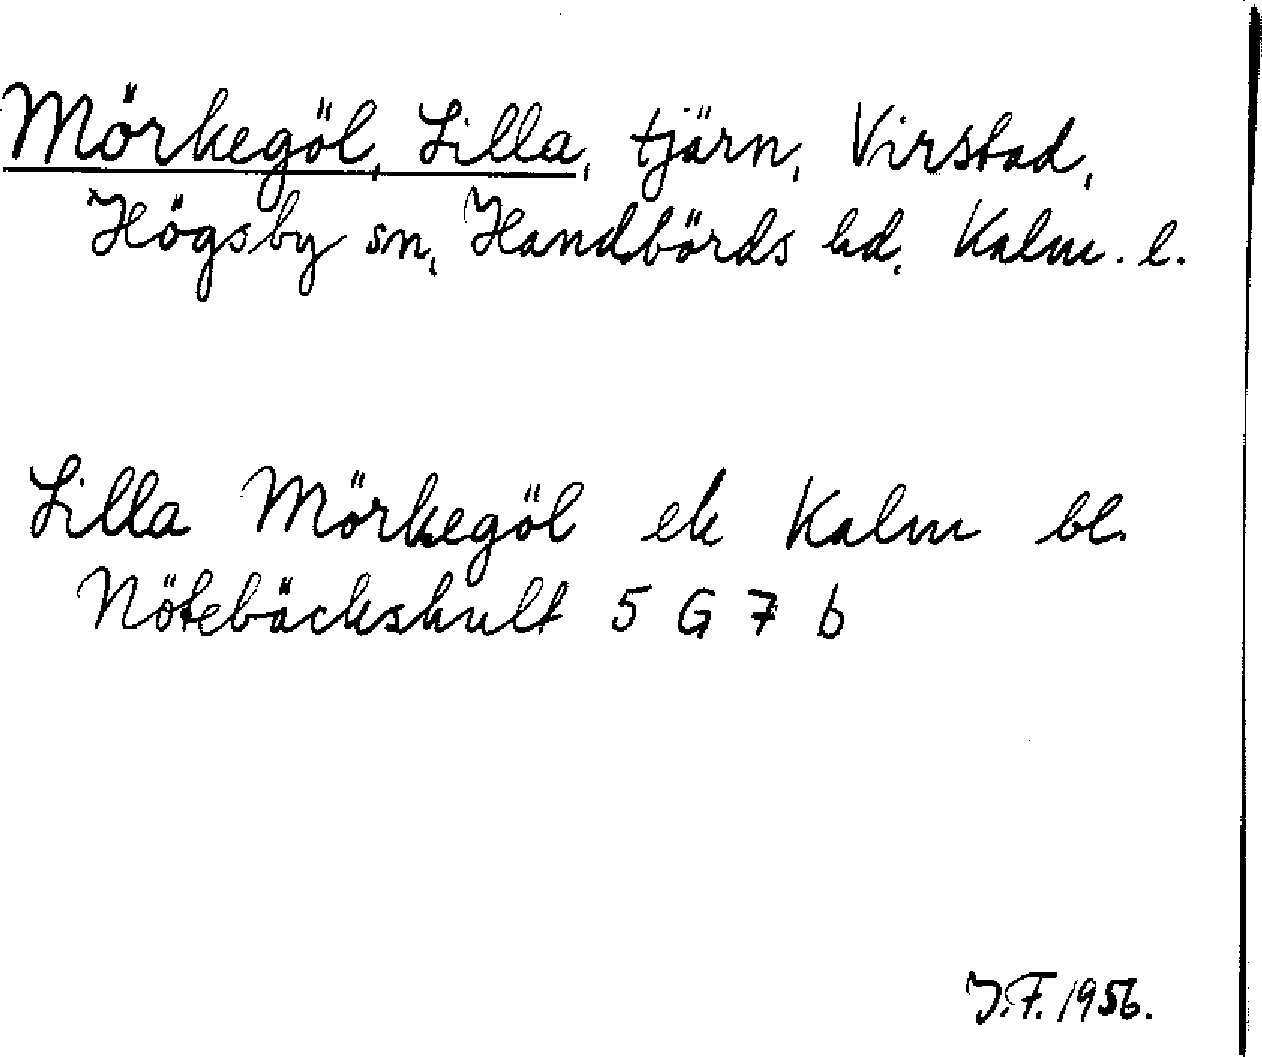 Mörkegöl, Lilla, tjärn, Virstad,
Högsby sn, Handbörds hd, Kalm. l.
Lilla Mörkegöl ek Kalm bl.
Nötebäckshult 5 G 7 b
J.F. 1956.